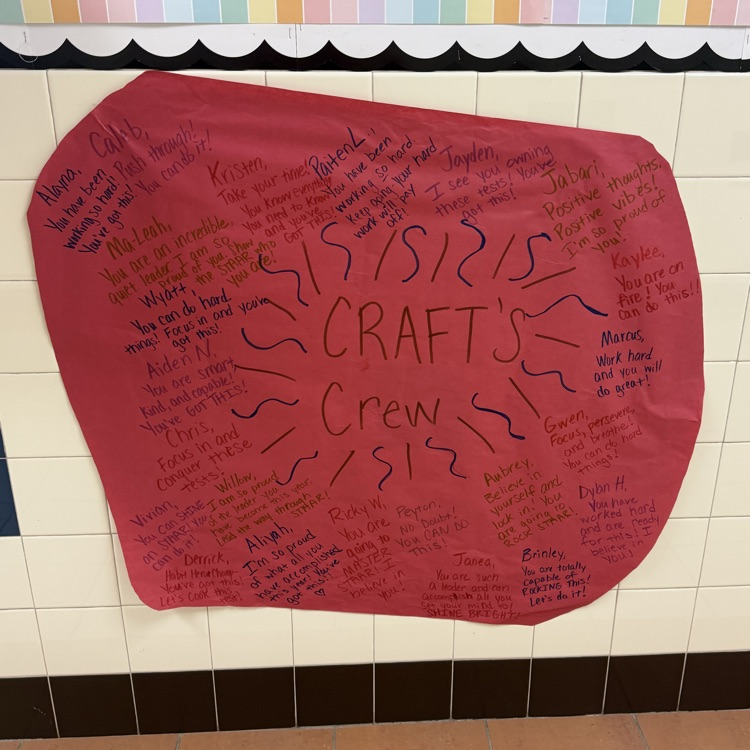 Caleb,
Push through!
You can do it!
Alayna,
You have been
working so hard.
You've got this!
Kristen,
Take your time!
You know everything
you need to know
and you've
GOT THIS!
Paiten L.,
You have been
working so hard.
Keep going your hard
work will pay
off!
Jayden,
I see you owning
these tests! You've
got this!
Jabari,
Positive thoughts,
Positive vibes!
I'm so proud of
you!
Ma-Leah,
You are an incredible,
quiet leader. I am so
proud of you. Show
the STAAR who
you are!
Kaylee,
You are on
fire! You
can do this!!
Wyatt,
You can do hard
things! Focus in and you've
got this!
CRAFT'S
Crew
Marcus,
Work hard
and you will
do great!
Aiden N,
You are smart,
kind, and capable!
You've GOT THIS!
Gwen,
Focus, persevere,
and breathe!
You can do hard
things!
Chris,
Focus in and
conquer these
tests!
Willow,
I am so proud
of the leader you
have become this year.
through this
STAAR!
Aubrey,
Believe in
yourself and
lock in. You
are going to
ROCK STAAR!
Dylan H,
You have
worked hard
and are ready
for this! I
believe in
you!
Vivian,
You can SHINE
on STAAR! You
can do it!
Aliyah,
I'm so proud
of what all you
have accomplished
this year! You've
got this!
Ricky W,
You are
going to
MASTER
STAAR! I
believe in
you!
Peyton,
No Doubt!
You CAN DO
This!
Derrick,
You've got this!
Let's cook this
Janea,
You are such
a leader and can
accomplish all you
set your mind to!
SHINE BRIGHT!
Brinley,
You are totally
capable of
ROCKING THIS!
Let's do it!